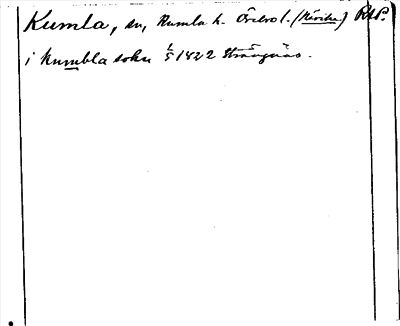 Kumla, sn, Kumla h. Örebro l. (Närike) RAP.
i Kumbla sokn 1/5 1422 Strängnäs.